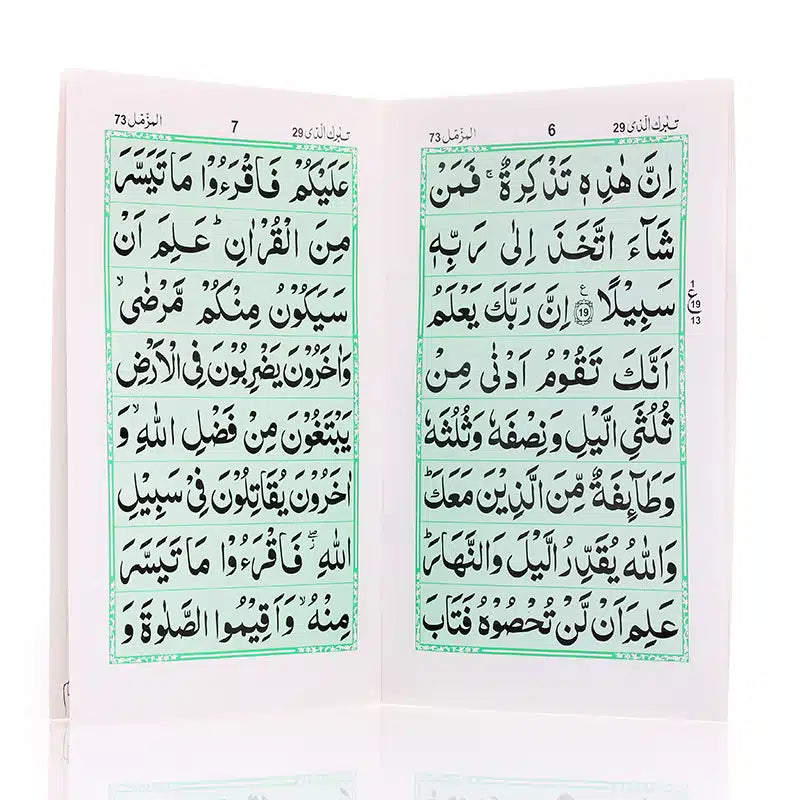 تبٰرك الّذى 29 6 المزّمّل 73
اِنَّ هٰذِهٖ تَذْكِرَةٌ ۚ فَمَنْ
شَآءَ اتَّخَذَ اِلٰى رَبِّهٖ
سَبِيْلًا ۧ 19 اِنَّ رَبَّكَ يَعْلَمُ
1
ع
19
13
اَنَّكَ تَقُوْمُ اَدْنٰى مِنْ
ثُلُثَىِ الَّيْلِ وَنِصْفَهٗ وَثُلُثَهٗ
وَطَآئِفَةٌ مِّنَ الَّذِيْنَ مَعَكَ ؕ
وَاللّٰهُ يُقَدِّرُ الَّيْلَ وَالنَّهَارَ ؕ
عَلِمَ اَنْ لَّنْ تُحْصُوْهُ فَتَابَ
تبٰرك الّذى 29 7 المزّمّل 73
عَلَيْكُمْ فَاقْرَءُوْا مَا تَيَسَّرَ
مِنَ الْقُرْاٰنِ ؕ عَلِمَ اَنْ
سَيَكُوْنُ مِنْكُمْ مَّرْضٰى ۙ
وَاٰخَرُوْنَ يَضْرِبُوْنَ فِى الْاَرْضِ
يَبْتَغُوْنَ مِنْ فَضْلِ اللّٰهِ ۙ وَ
اٰخَرُوْنَ يُقَاتِلُوْنَ فِىْ سَبِيْلِ
اللّٰهِ ۖ فَاقْرَءُوْا مَا تَيَسَّرَ
مِنْهُ ۙ وَاَقِيْمُوا الصَّلٰوةَ وَ